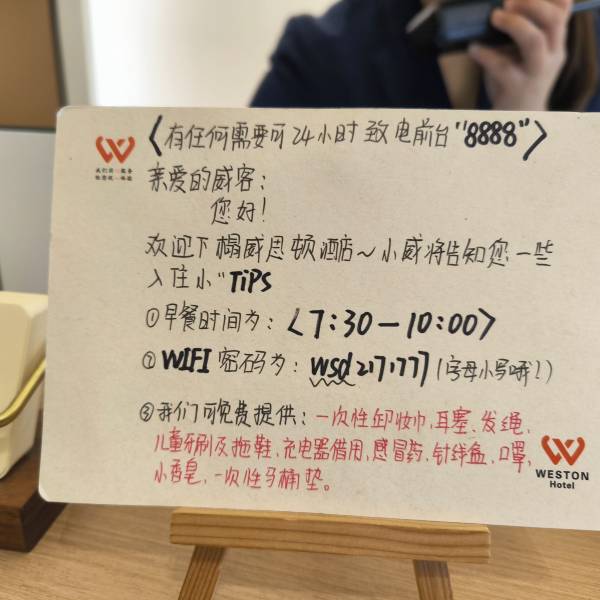 〈有任何需要可24小时致电前台"8888"〉
亲爱的威客：
您好！
欢迎下榻威思顿酒店~小威将告知您一些
入住小"TiPS
①早餐时间为：〈7:30-10:00〉
②WIFI密码为：wsd217177(字母小写哦!)
③我们可免费提供：一次性卸妆巾、耳塞、发绳、
儿童牙刷及拖鞋、充电器借用、感冒药、针线盒、口罩、
小香皂、一次性马桶垫。
WESTON
Hotel